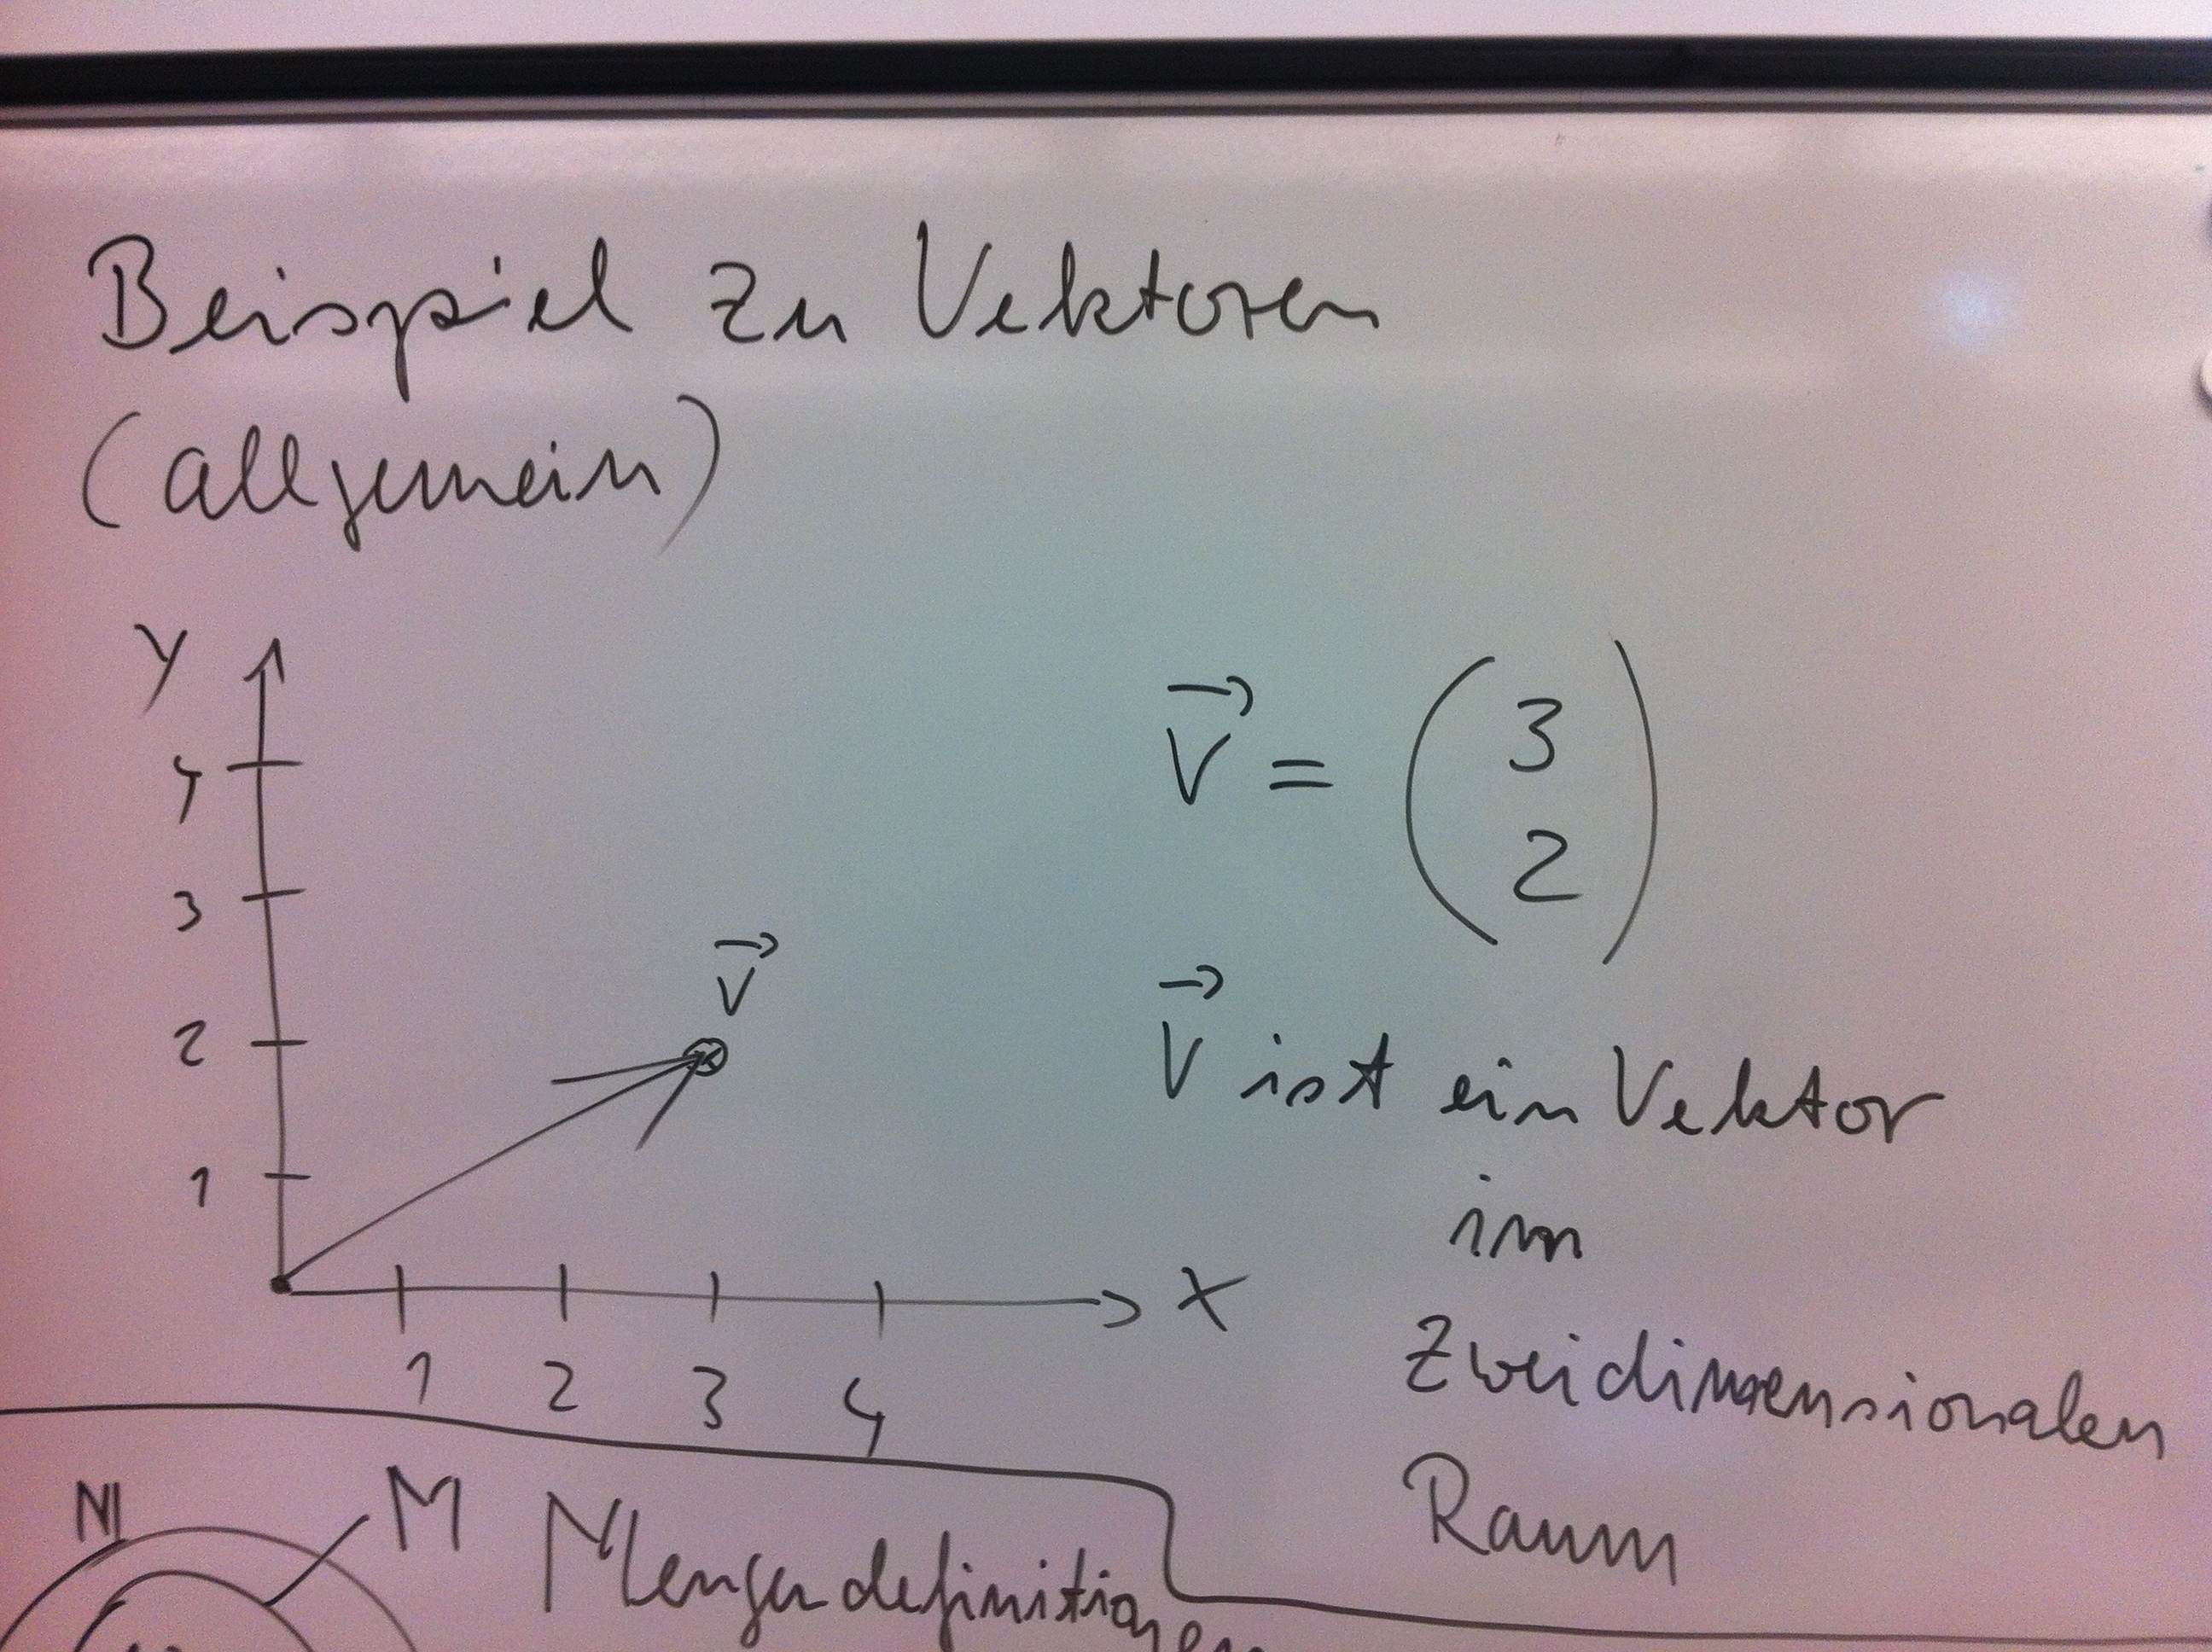 Beispiel zu Vektoren
(allgemein)
Y
4
3
2
1
v⃗
1 2 3 4
X
v⃗ = (3
2)
v⃗ ist ein Vektor
im
Zweidimensionalen
Raum
ℕ
M
Mengendefinitionen